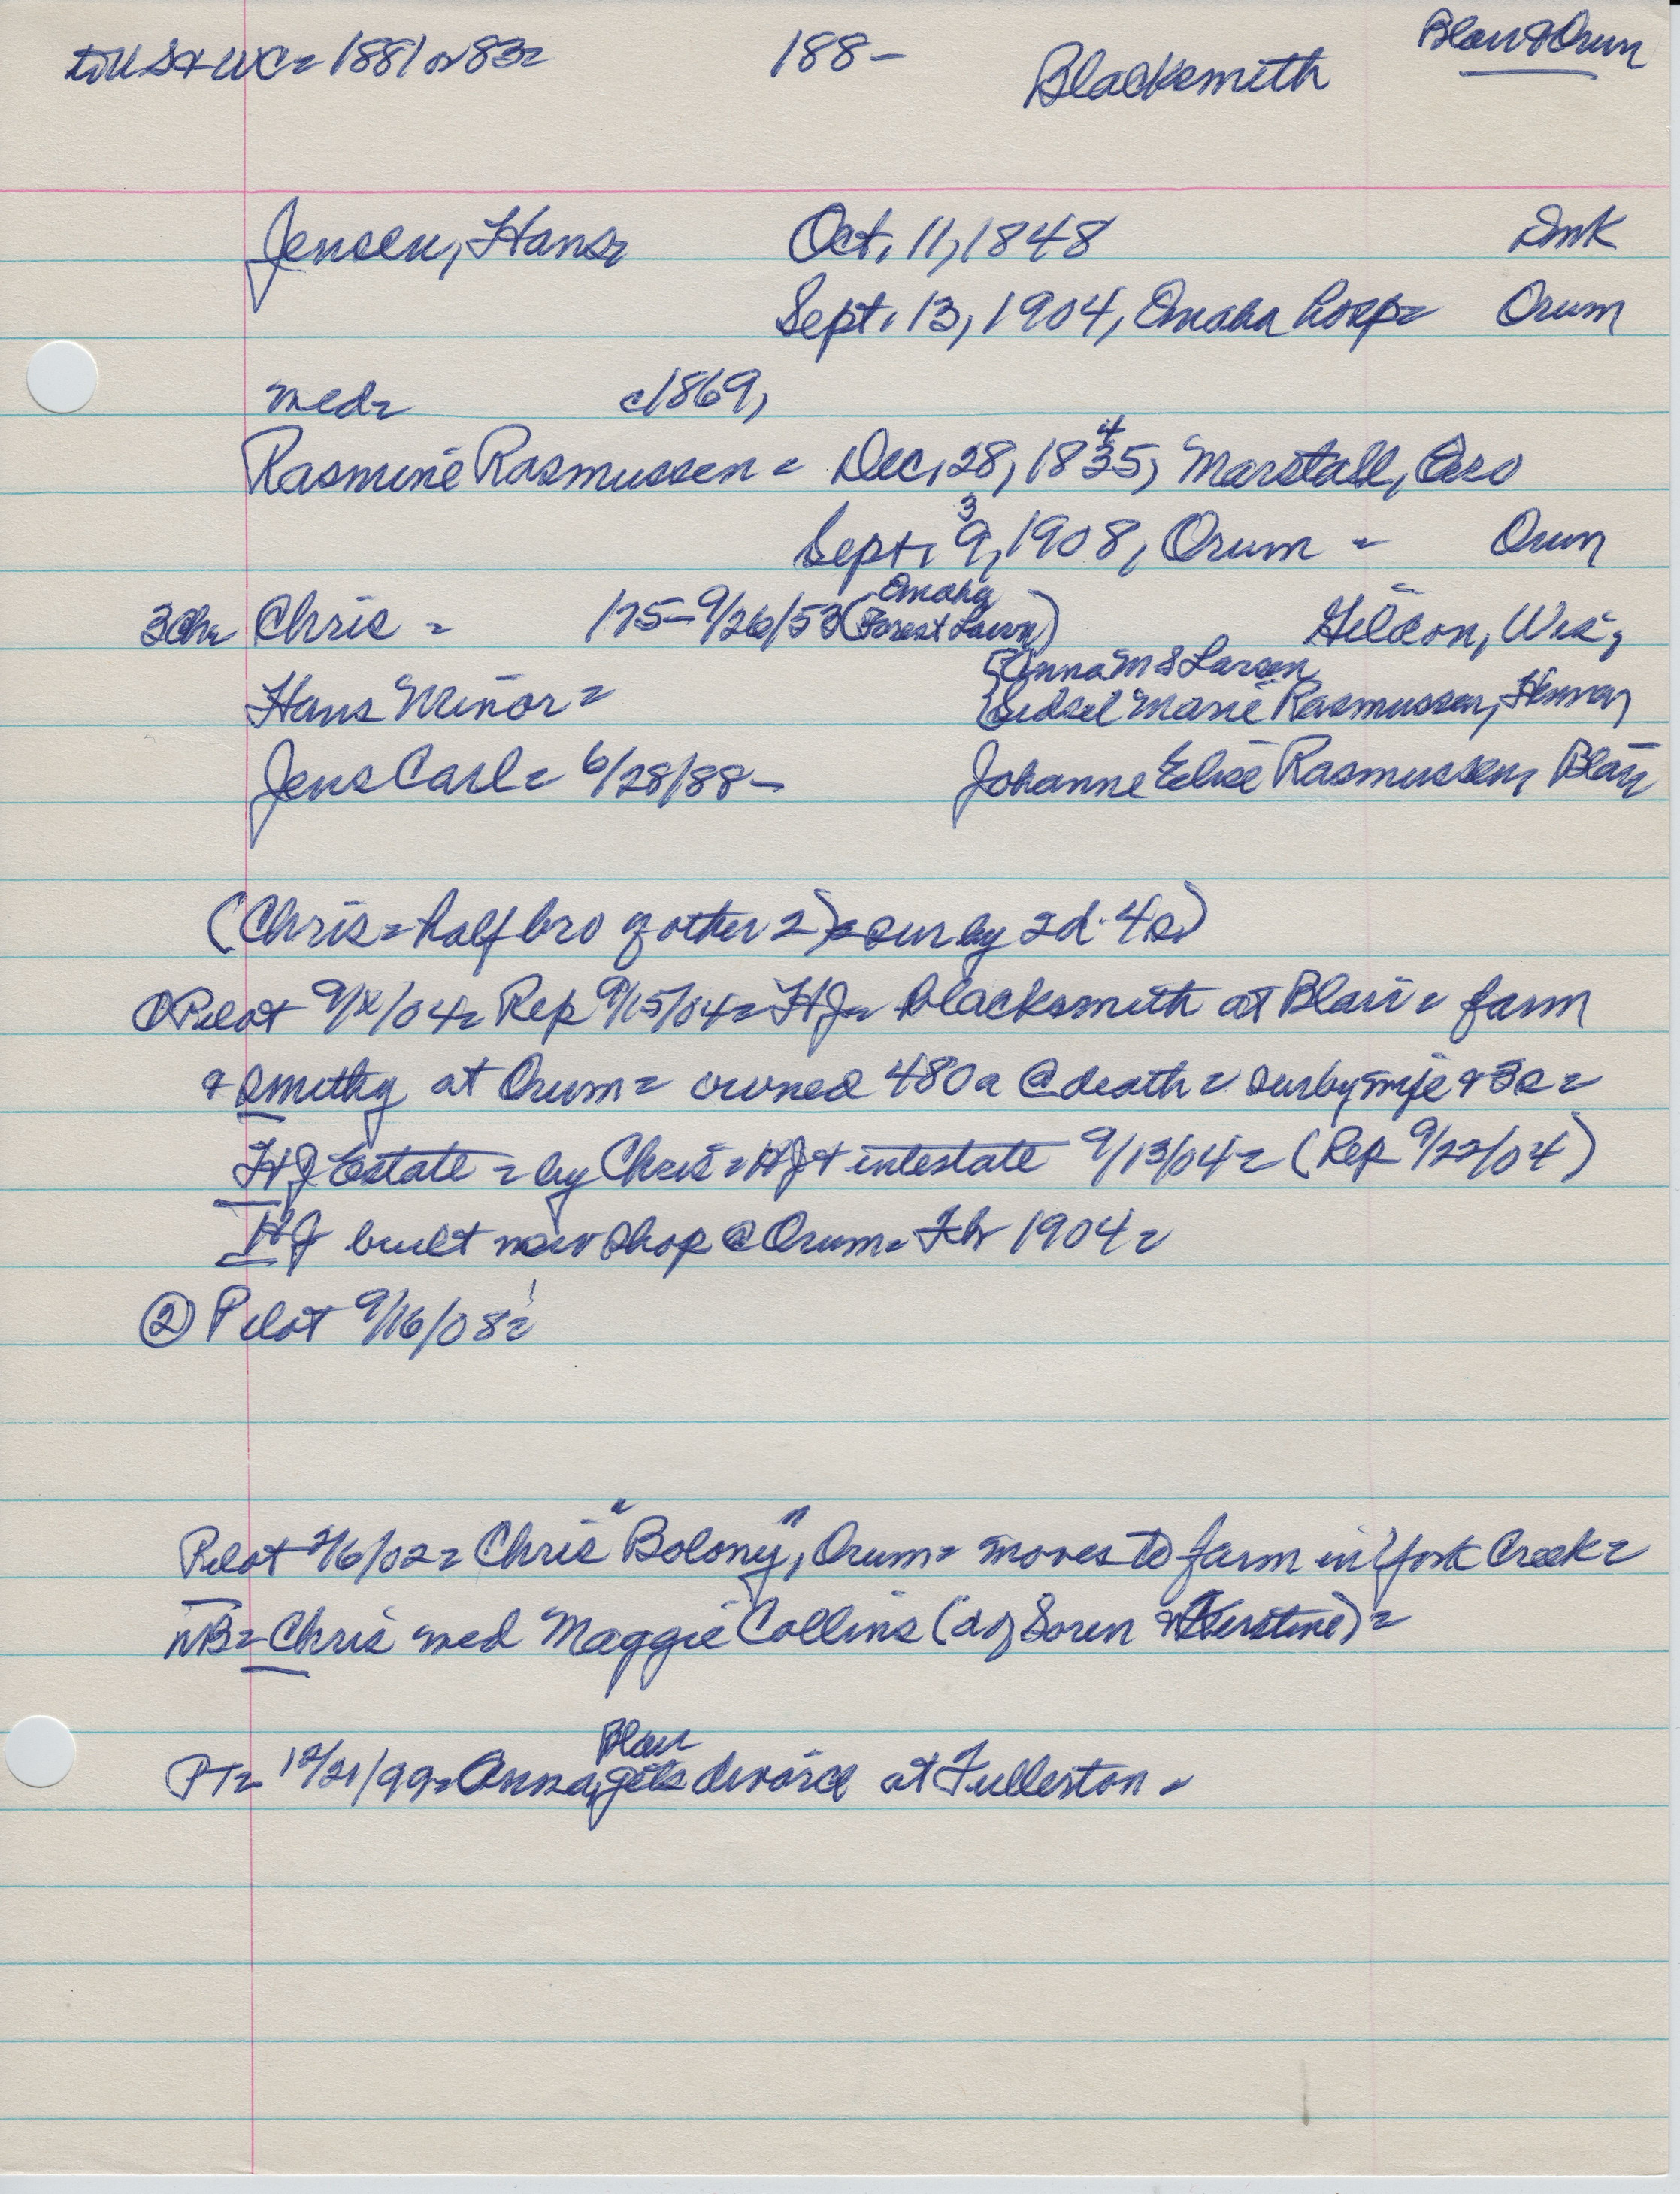 to US & WC = 1881 or 83 = 188- Blacksmith Blair & Orum
Jensen, Hans = Oct. 11, 1848 Dmk
Sept. 13, 1904, Omaha hosp = Orum
med = c1869,
Rasmine Rasmussen = Dec. 28, 1835, 4 Marstall, Æro
Sept. 9, 3 1908, Orum = Orum
3 Ch = Chris = /75 - 9/26/53 (Omaha Forest Lawn) Wis,
Hans Minor = {Anna M S Larsen
{Sidsel Marie Rasmussen,
Jens Carl = 6/28/88 - Johanne Elise Rasmussen, Blair
(Chris = half bro of other 2) = sur by 2d. 4s)
① Pilot 9/ /04 = Rep 9/15/04 = HJ = blacksmith at Blair = farm
& smithy at Orum = owned 480a @ death = sur by wife & 3s =
HJ Estate = by Chris = HJ + intestate 9/13/04 = (Rep 9/22/04)
HJ built new shop @ Orum = 1904 =
② Pilot 9/16/08 =
Pilot 2/6/02 = Chris "Bolony", Orum = moves to farm in York Creek =
NB = Chris med Maggie Collins (d of Soren & Kerstine) =
PT = 12/21/99 = Anna, Blair gets divorce at Fullerton =